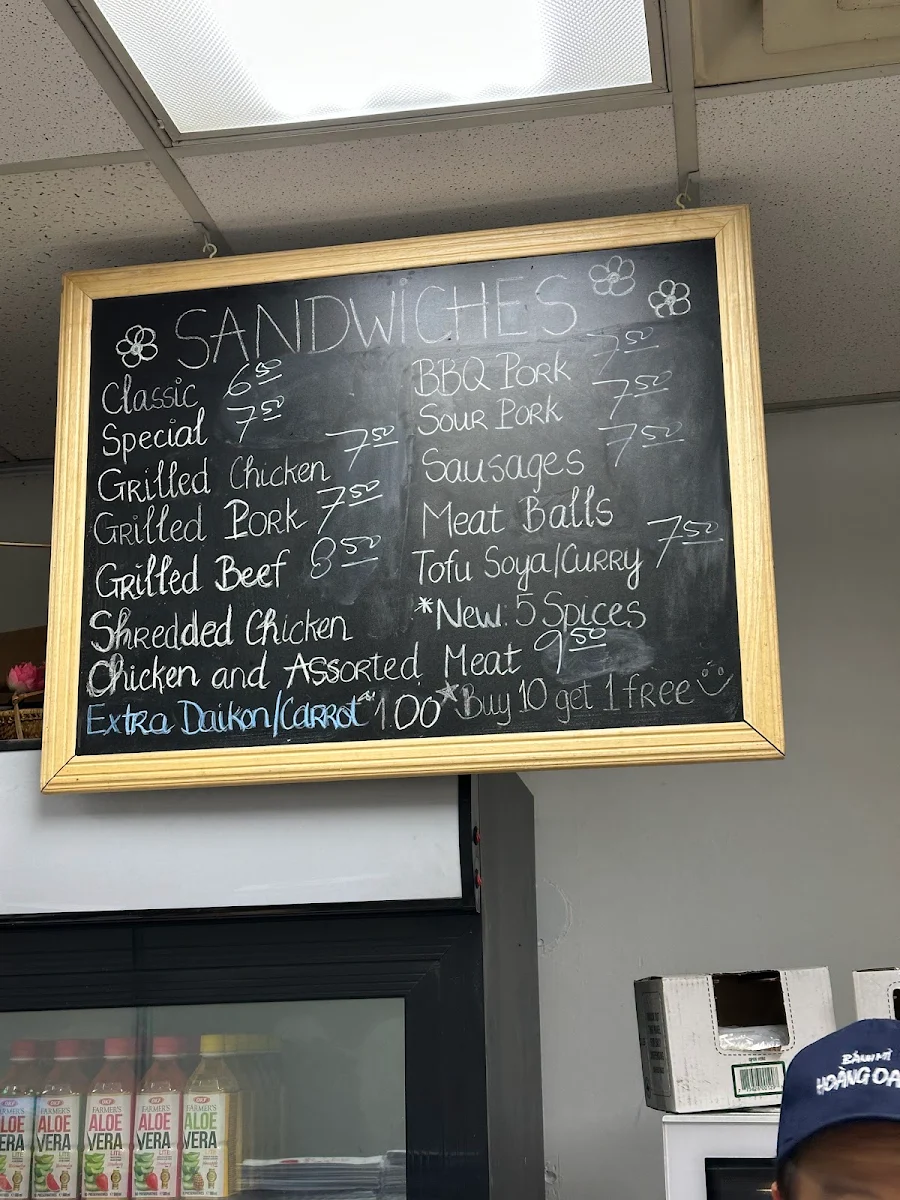 SANDWICHES
Classic 6.50
Special 7.50
Grilled Chicken 7.50
Grilled Pork 7.50
Grilled Beef 8.50
Shredded Chicken
BBQ Pork 7.50
Sour Pork 7.50
Sausages 7.50
Meat Balls
Tofu Soya/Curry 7.50
*New: 5 Spices
Chicken and Assorted Meat 9.50
Extra Daikon/Carrot 1.00 *Buy 10 get 1 free
FARMER'S
ALOE
VERA
FARMER'S
ALOE
VERA
FARMER'S
ALOE
VERA
FARMER'S
ALOE
VERA
FARMER'S
ALOE
VERA
BÁNH MÌ
HOÀNG OA